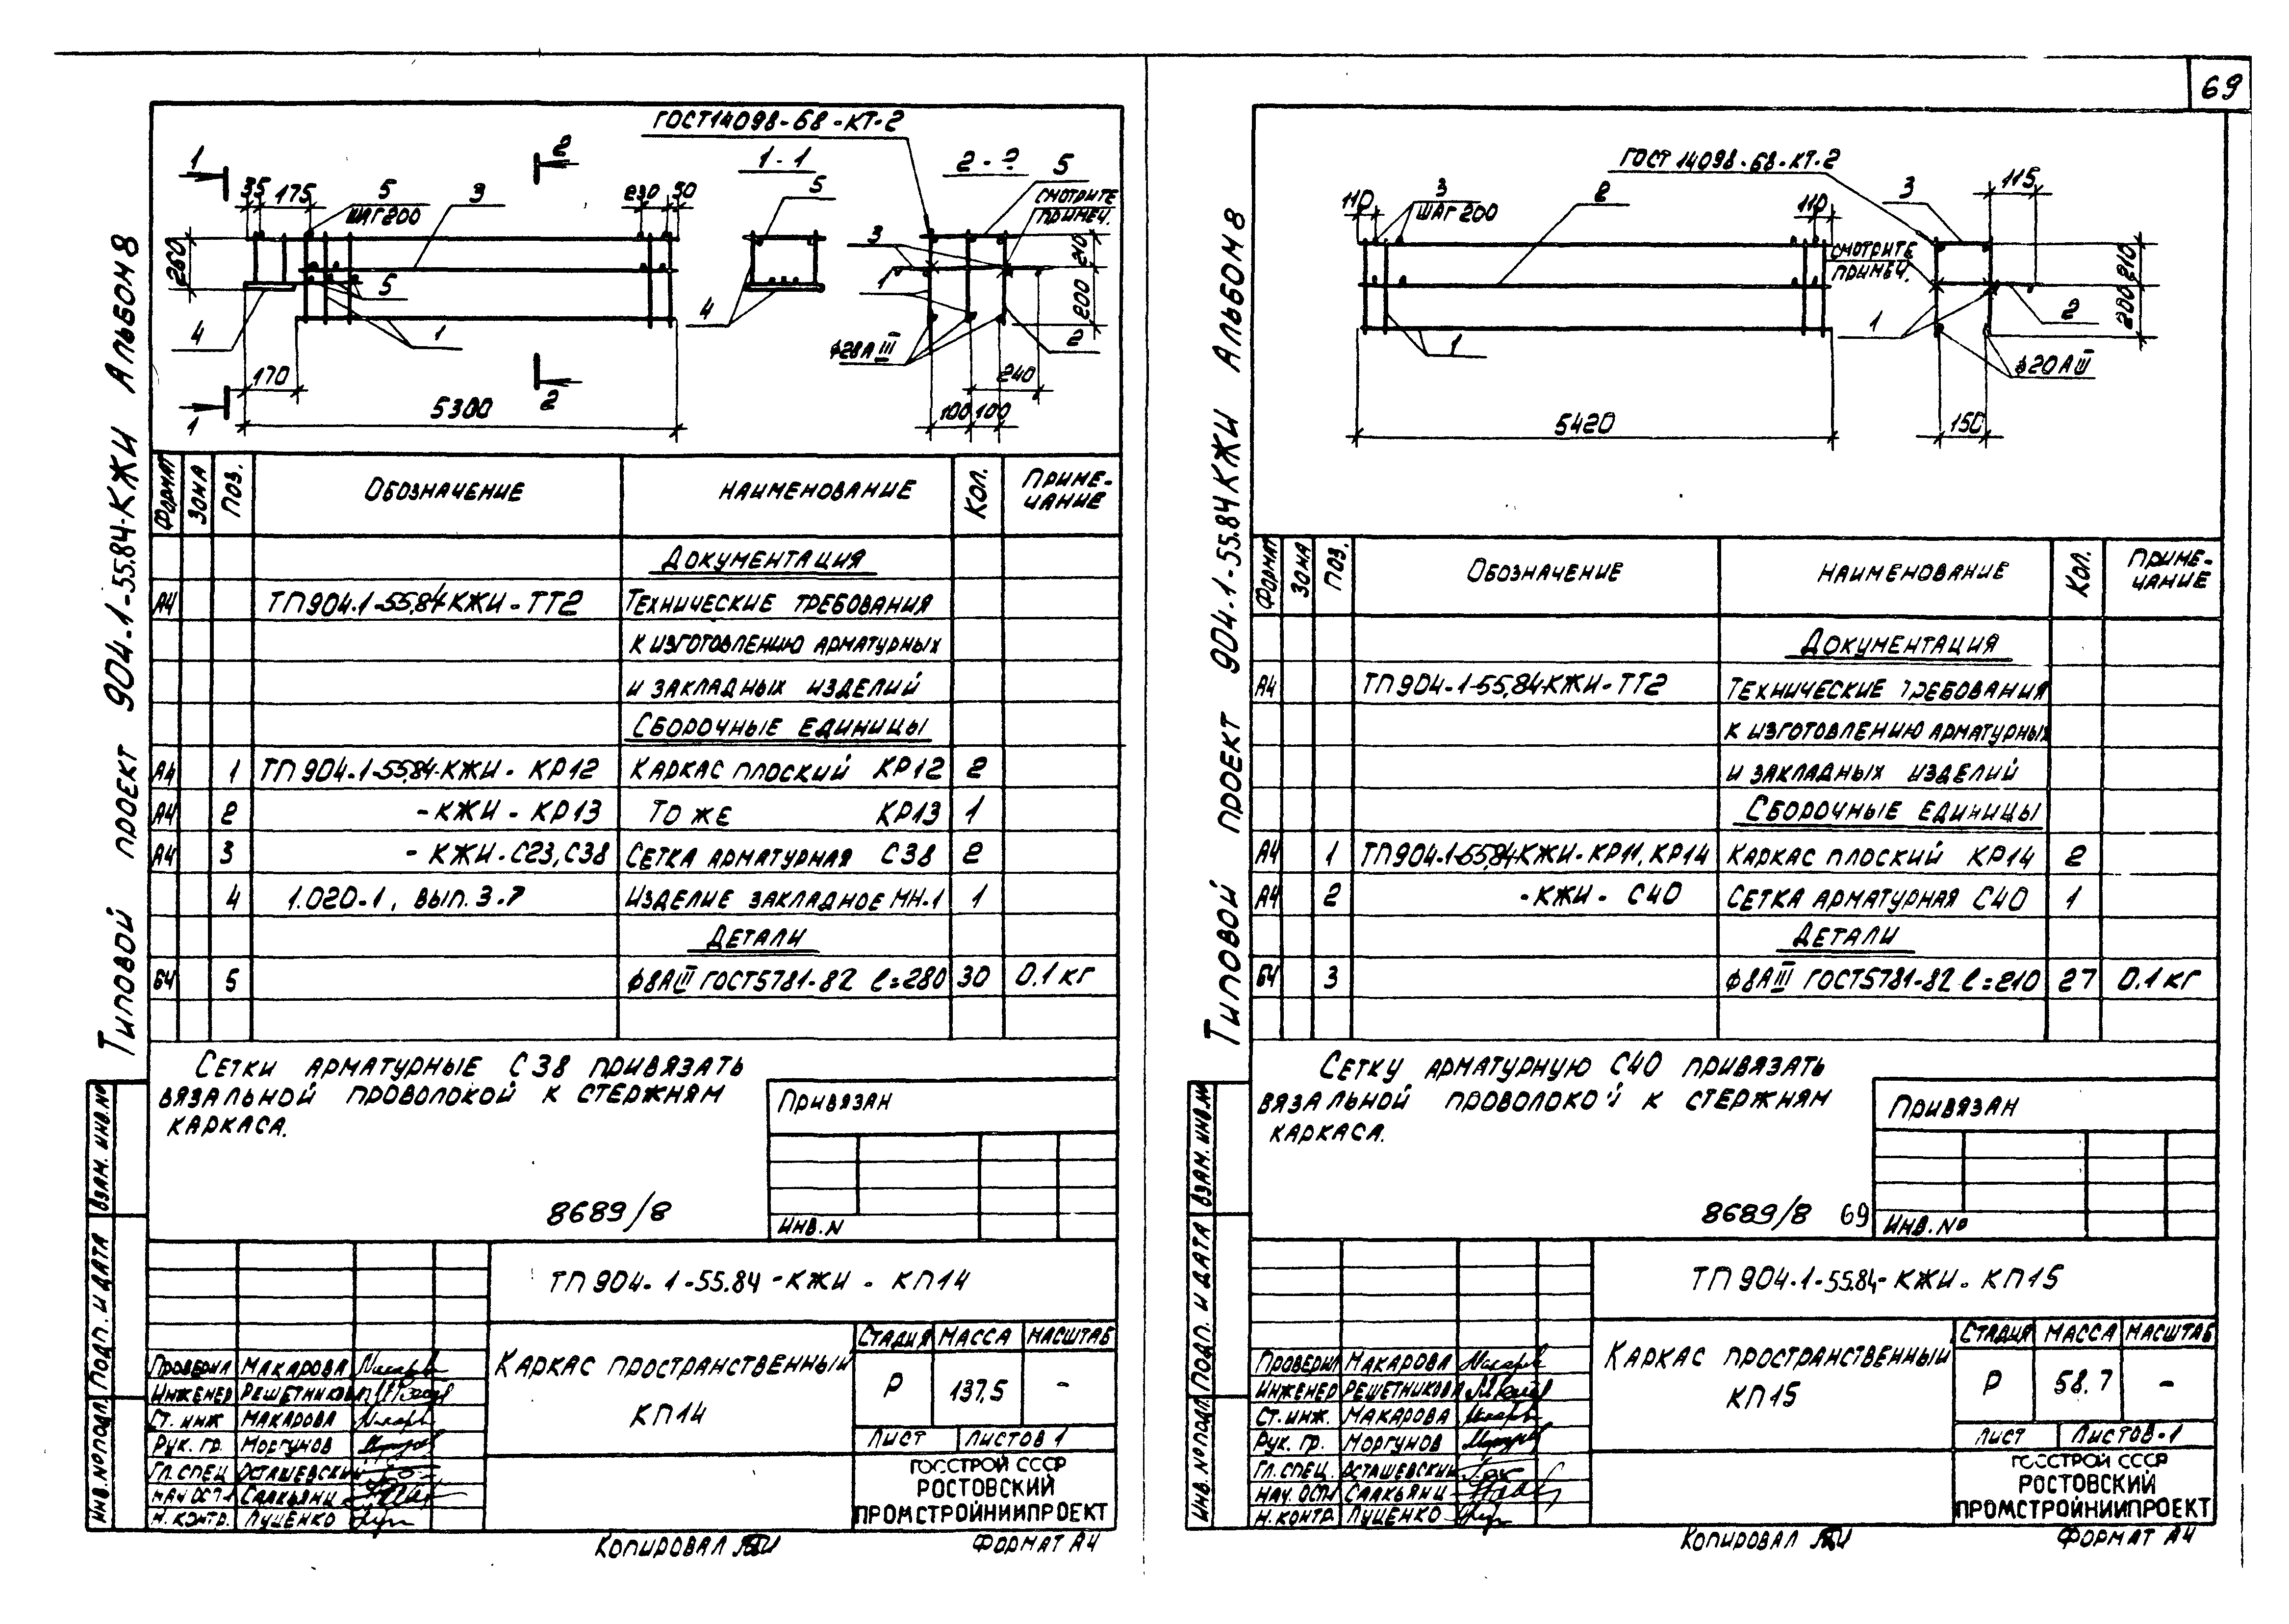 69
Типовой проект 904-1-55.84-КЖИ Альбом 8
ГОСТ 14098-68-КТ-2
1 2 1-1 2-2 5
35 175 5 3 230 50 5
ШАГ 200
СМОТРИТЕ
ПРИМЕЧ.
260 5 3 210
4 1 4 1 200
2
⌀28АIII
170 240
1 5300 2 100 100
ФОРМАТ ЗОНА ПОЗ. ОБОЗНАЧЕНИЕ НАИМЕНОВАНИЕ КОЛ. ПРИМЕ-
ЧАНИЕ
ДОКУМЕНТАЦИЯ
А4 ТП904.1-55.84КЖИ-ТТ2 ТЕХНИЧЕСКИЕ ТРЕБОВАНИЯ
К ИЗГОТОВЛЕНИЮ АРМАТУРНЫХ
И ЗАКЛАДНЫХ ИЗДЕЛИЙ
СБОРОЧНЫЕ ЕДИНИЦЫ
А4 1 ТП904.1-55.84-КЖИ-КР12 КАРКАС ПЛОСКИЙ КР12 2
А4 2 -КЖИ-КР13 ТО ЖЕ КР13 1
А4 3 -КЖИ-С23,С38 СЕТКА АРМАТУРНАЯ С38 2
4 1.020-1, ВЫП. 3-7 ИЗДЕЛИЕ ЗАКЛАДНОЕ МН-1 1
ДЕТАЛИ
БЧ 5 ⌀8АIII ГОСТ5781-82 ℓ=280 30 0.1кг
СЕТКИ АРМАТУРНЫЕ С38 ПРИВЯЗАТЬ
ВЯЗАЛЬНОЙ ПРОВОЛОКОЙ К СТЕРЖНЯМ
КАРКАСА.
ПРИВЯЗАН
8689/8
ИНВ.N
ИНВ.№ПОДЛ. ПОДП. И ДАТА ВЗАМ. ИНВ.№
ТП 904-1-55.84-КЖИ-КП14
ПРОВЕРИЛ МАКАРОВА
ИНЖЕНЕР РЕШЕТНИКОВА
СТ. ИНЖ МАКАРОВА
РУК. ГР. МОРГУНОВ
ГЛ. СПЕЦ ОСТАШЕВСКИЙ
СААКЬЯНЦ
Н. КОНТР. ЛУЦЕНКО
КАРКАС ПРОСТРАНСТВЕННЫЙ
КП14
СТАДИЯ МАССА МАСШТАБ
Р 137,5 -
ЛИСТ ЛИСТОВ 1
ГОССТРОЙ СССР
РОСТОВСКИЙ
ПРОМСТРОЙНИИПРОЕКТ
КОПИРОВАЛ ФОРМАТ А4
Типовой проект 904-1-55.84КЖИ Альбом 8
ГОСТ 14098-68-КТ-2
110 3 2 110 3 115
ШАГ 200
СМОТРИТЕ
ПРИМЕЧ.
210
1 1 2 200
⌀20АIII
5420 150
ФОРМАТ ЗОНА ПОЗ. ОБОЗНАЧЕНИЕ НАИМЕНОВАНИЕ КОЛ. ПРИМЕ-
ЧАНИЕ
ДОКУМЕНТАЦИЯ
А4 ТП904-1-55,84-КЖИ-ТТ2 ТЕХНИЧЕСКИЕ ТРЕБОВАНИЯ
К ИЗГОТОВЛЕНИЮ АРМАТУРНЫХ
И ЗАКЛАДНЫХ ИЗДЕЛИЙ
СБОРОЧНЫЕ ЕДИНИЦЫ
А4 1 ТП904-1-55,84-КЖИ-КР11, КР14 КАРКАС ПЛОСКИЙ КР14 2
А4 2 -КЖИ-С40 СЕТКА АРМАТУРНАЯ С40 1
ДЕТАЛИ
БЧ 3 ⌀8АIII ГОСТ5781-82 ℓ=210 27 0.1кг
СЕТКУ АРМАТУРНУЮ С40 ПРИВЯЗАТЬ
ВЯЗАЛЬНОЙ ПРОВОЛОКОЙ К СТЕРЖНЯМ
КАРКАСА.
ПРИВЯЗАН
8689/8 69
ИНВ.№
ИНВ.№ПОДЛ. ПОДП. И ДАТА ВЗАМ. ИНВ.№
ТП 904-1-55.84-КЖИ-КП15
ПРОВЕРИЛ МАКАРОВА
ИНЖЕНЕР РЕШЕТНИКОВА
СТ. ИНЖ. МАКАРОВА
РУК. ГР. МОРГУНОВ
ГЛ. СПЕЦ. ОСТАШЕВСКИЙ
СААКЬЯНЦ
Н. КОНТР. ЛУЦЕНКО
КАРКАС ПРОСТРАНСТВЕННЫЙ
КП15
СТАДИЯ МАССА МАСШТАБ
Р 58.7 -
ЛИСТ ЛИСТОВ-1
ГОССТРОЙ СССР
РОСТОВСКИЙ
ПРОМСТРОЙНИИПРОЕКТ
КОПИРОВАЛ ФОРМАТ А4